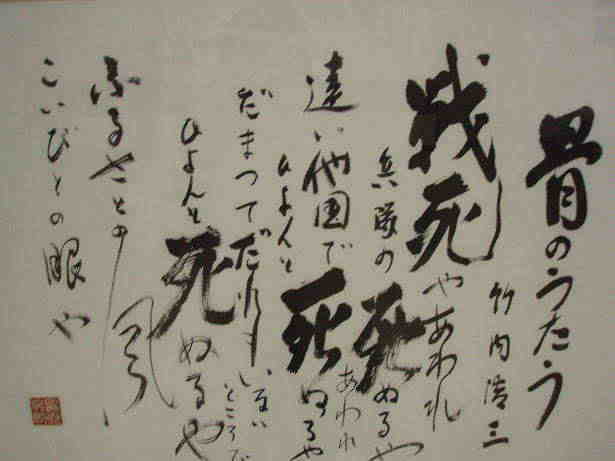 骨のうたう
竹内浩三
戦死やあわれ
兵隊の死ぬるや
あわれ
遠い他国で
ひょんと死ぬるや
だまってだれもいないところで
ひょんと死ぬるや
ふるさとの風
こいびとの眼や